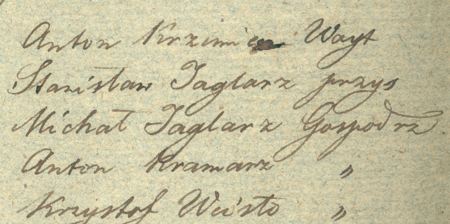 Anton Krzimien Wayt
Stanisław Taglarz przys
Michał Taglarz Gospodrz.
Anton Kramarz "
Krzysztof Wcisło "